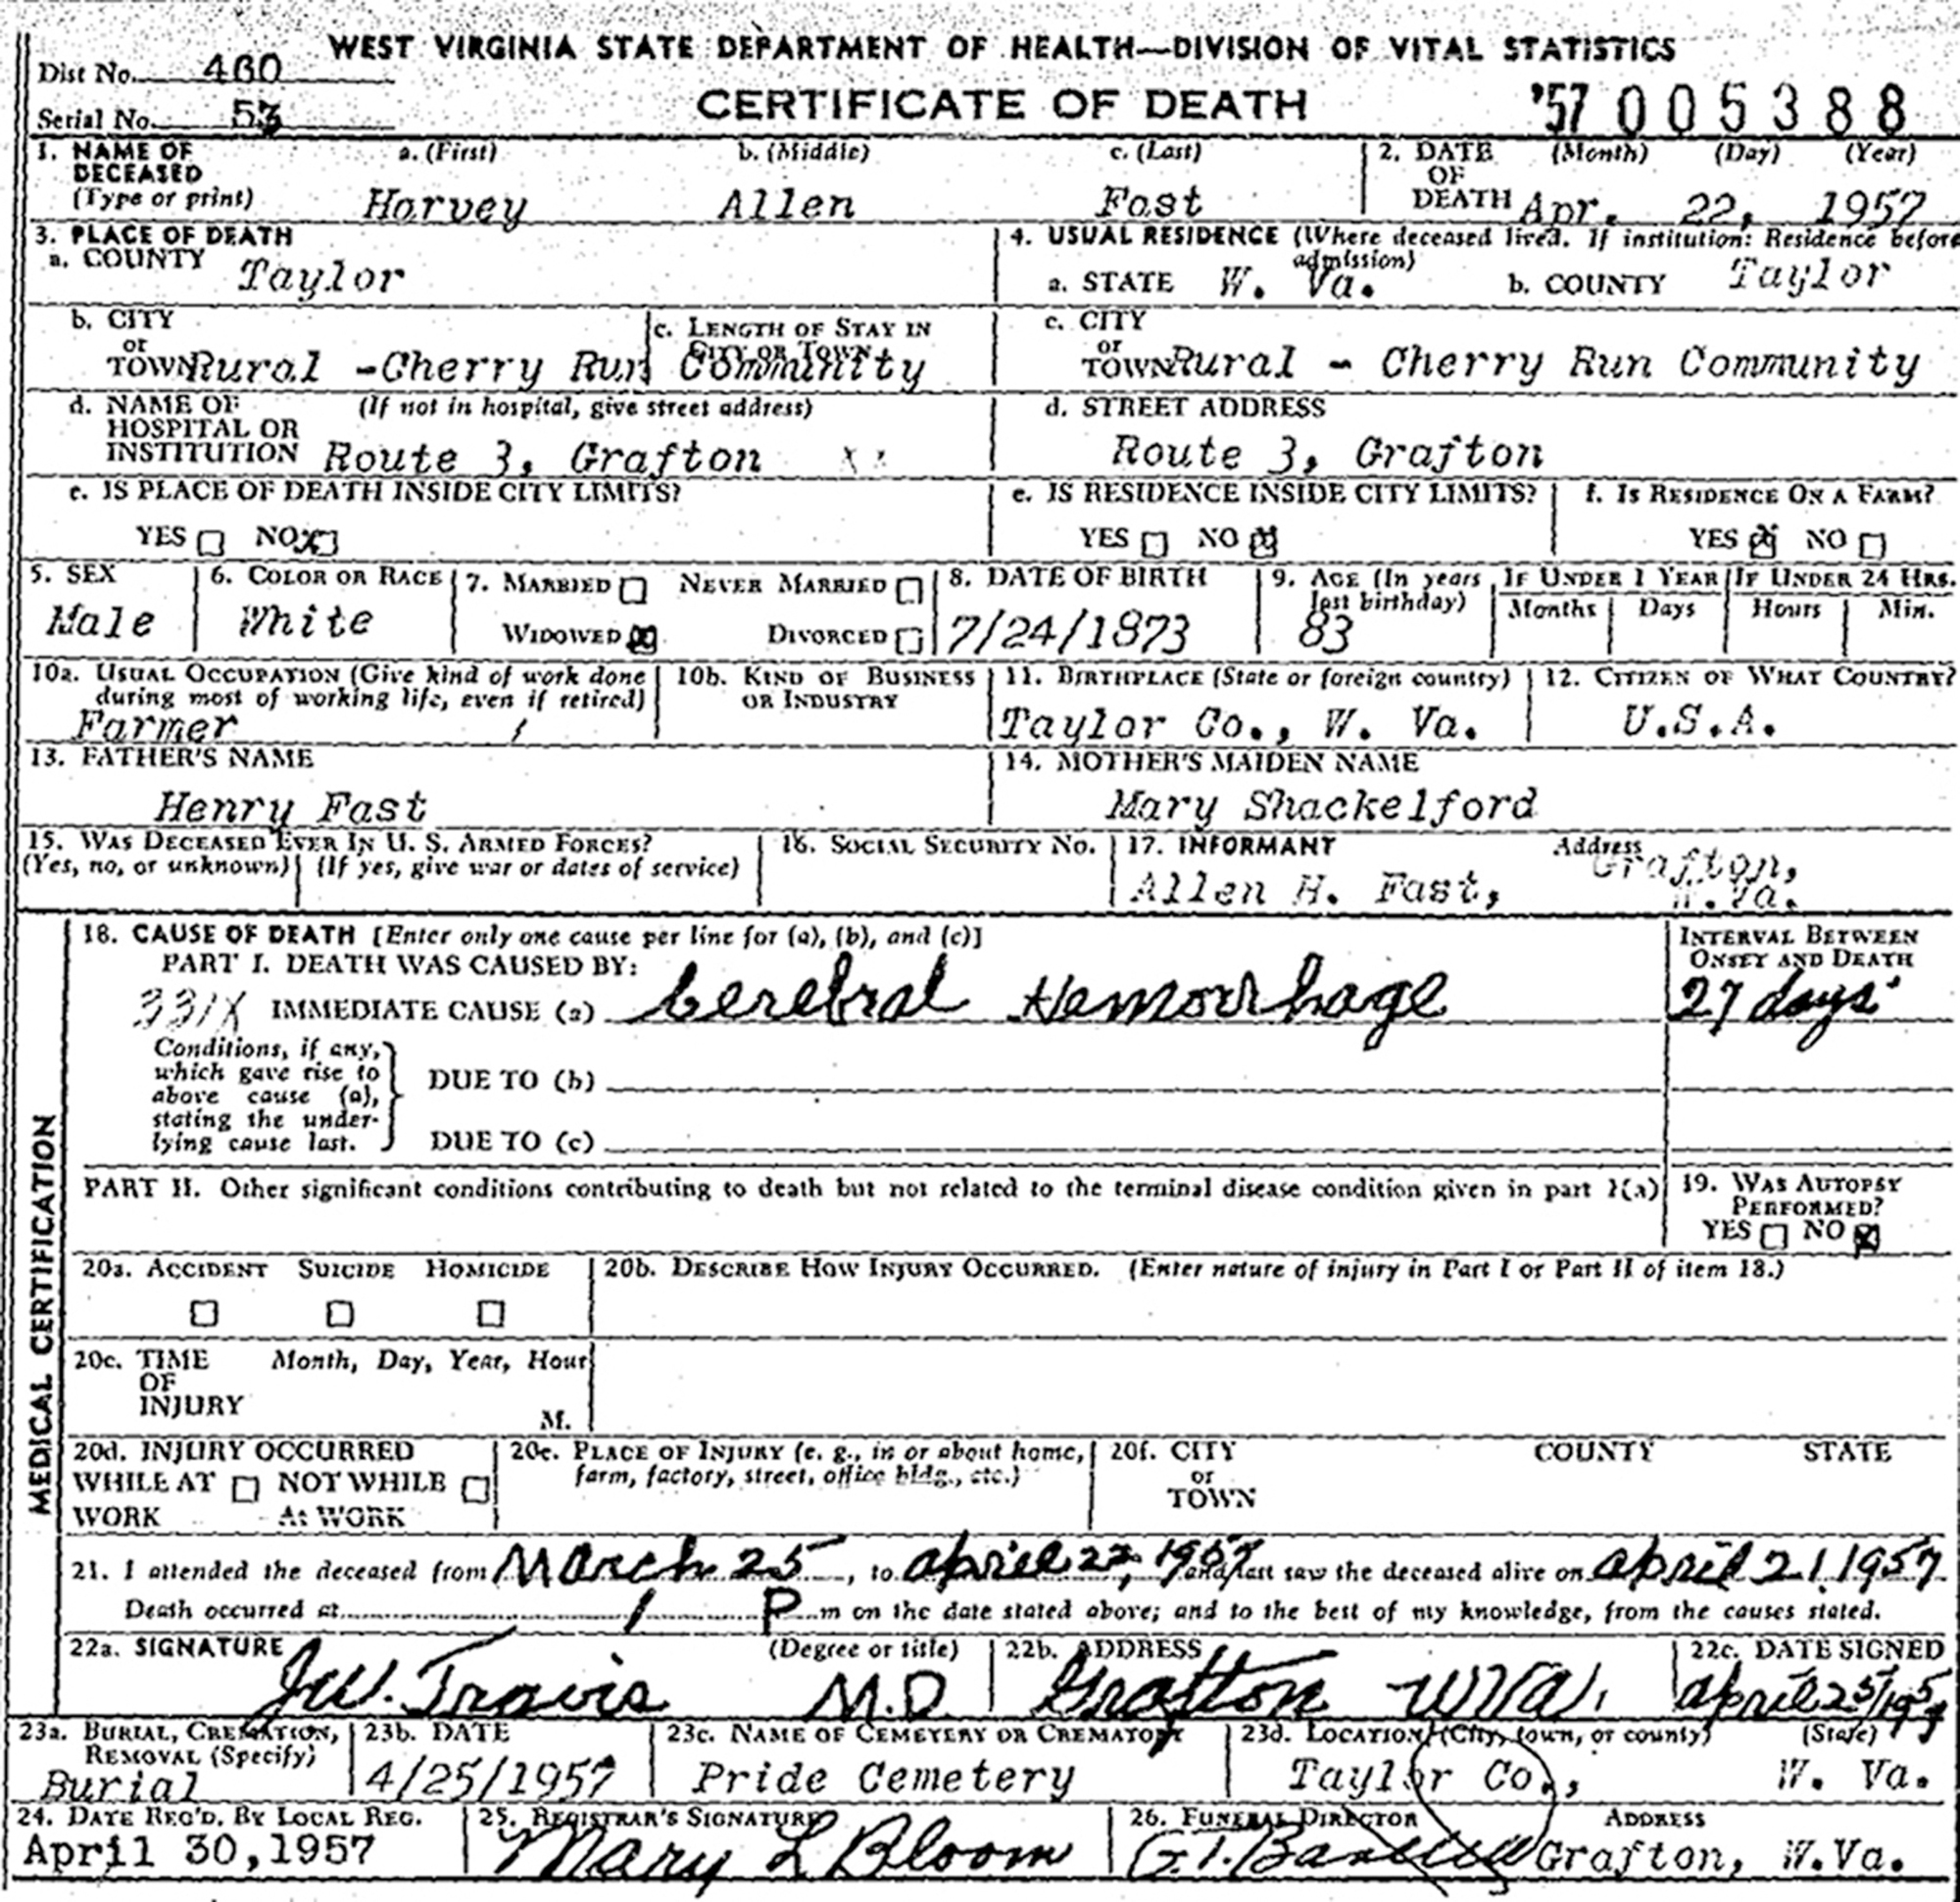 WEST VIRGINIA STATE DEPARTMENT OF HEALTH—DIVISION OF VITAL STATISTICS
Dist No. 460
CERTIFICATE OF DEATH
'57 005388
Serial No. 53
1. NAME OF DECEASED (Type or print)
a. (First) b. (Middle) c. (Last)
Harvey Allen Fast
2. DATE OF DEATH (Month) (Day) (Year)
Apr. 22, 1957
3. PLACE OF DEATH
a. COUNTY Taylor
4. USUAL RESIDENCE (Where deceased lived. If institution: Residence before admission)
a. STATE W. Va. b. COUNTY Taylor
b. CITY or TOWN Rural - Cherry Run Community
c. LENGTH OF STAY IN CITY OR TOWN
c. CITY or TOWN Rural - Cherry Run Community
d. NAME OF HOSPITAL OR INSTITUTION (If not in hospital, give street address)
Route 3, Grafton
d. STREET ADDRESS
Route 3, Grafton
e. IS PLACE OF DEATH INSIDE CITY LIMITS?
YES ☐ NO ☒
e. IS RESIDENCE INSIDE CITY LIMITS?
YES ☐ NO ☒
f. IS RESIDENCE ON A FARM?
YES ☒ NO ☐
5. SEX
Male
6. COLOR OR RACE
White
7. MARRIED ☐ NEVER MARRIED ☐
WIDOWED ☒ DIVORCED ☐
8. DATE OF BIRTH
7/24/1873
9. AGE (In years last birthday)
83
IF UNDER 1 YEAR
Months Days
IF UNDER 24 HRS.
Hours Min.
10a. USUAL OCCUPATION (Give kind of work done during most of working life, even if retired)
Farmer
10b. KIND OF BUSINESS OR INDUSTRY
11. BIRTHPLACE (State or foreign country)
Taylor Co., W. Va.
12. CITIZEN OF WHAT COUNTRY?
U.S.A.
13. FATHER'S NAME
Henry Fast
14. MOTHER'S MAIDEN NAME
Mary Shackelford
15. WAS DECEASED EVER IN U. S. ARMED FORCES?
(Yes, no, or unknown) (If yes, give war or dates of service)
16. SOCIAL SECURITY NO.
17. INFORMANT Address
Allen H. Fast, Grafton, W. Va.
MEDICAL CERTIFICATION
18. CAUSE OF DEATH [Enter only one cause per line for (a), (b), and (c)]
PART I. DEATH WAS CAUSED BY:
331X IMMEDIATE CAUSE (a) Cerebral Hemorrhage
INTERVAL BETWEEN ONSET AND DEATH
27 days
Conditions, if any, which gave rise to above cause (a), stating the underlying cause last.
DUE TO (b)
DUE TO (c)
PART II. Other significant conditions contributing to death but not related to the terminal disease condition given in part I(a)
19. WAS AUTOPSY PERFORMED?
YES ☐ NO ☒
20a. ACCIDENT SUICIDE HOMICIDE
☐ ☐ ☐
20b. DESCRIBE HOW INJURY OCCURRED. (Enter nature of injury in Part I or Part II of item 18.)
20c. TIME OF INJURY Month, Day, Year, Hour
M.
20d. INJURY OCCURRED
WHILE AT WORK ☐ NOT WHILE AT WORK ☐
20e. PLACE OF INJURY (e. g., in or about home, farm, factory, street, office bldg., etc.)
20f. CITY or TOWN COUNTY STATE
21. I attended the deceased from March 25, to april 22, 1957 and last saw the deceased alive on april 21, 1957
Death occurred at 1 P m on the date stated above; and to the best of my knowledge, from the causes stated.
22a. SIGNATURE (Degree or title)
J.W. Travis M.D.
22b. ADDRESS
Grafton W Va.
22c. DATE SIGNED
april 25/1957
23a. BURIAL, CREMATION, REMOVAL (Specify)
Burial
23b. DATE
4/25/1957
23c. NAME OF CEMETERY OR CREMATORY
Pride Cemetery
23d. LOCATION (City, town, or county) (State)
Taylor Co., W. Va.
24. DATE REC'D. BY LOCAL REG.
April 30, 1957
25. REGISTRAR'S SIGNATURE
Mary L Bloom
26. FUNERAL DIRECTOR ADDRESS
G.T. Grafton, W.Va.